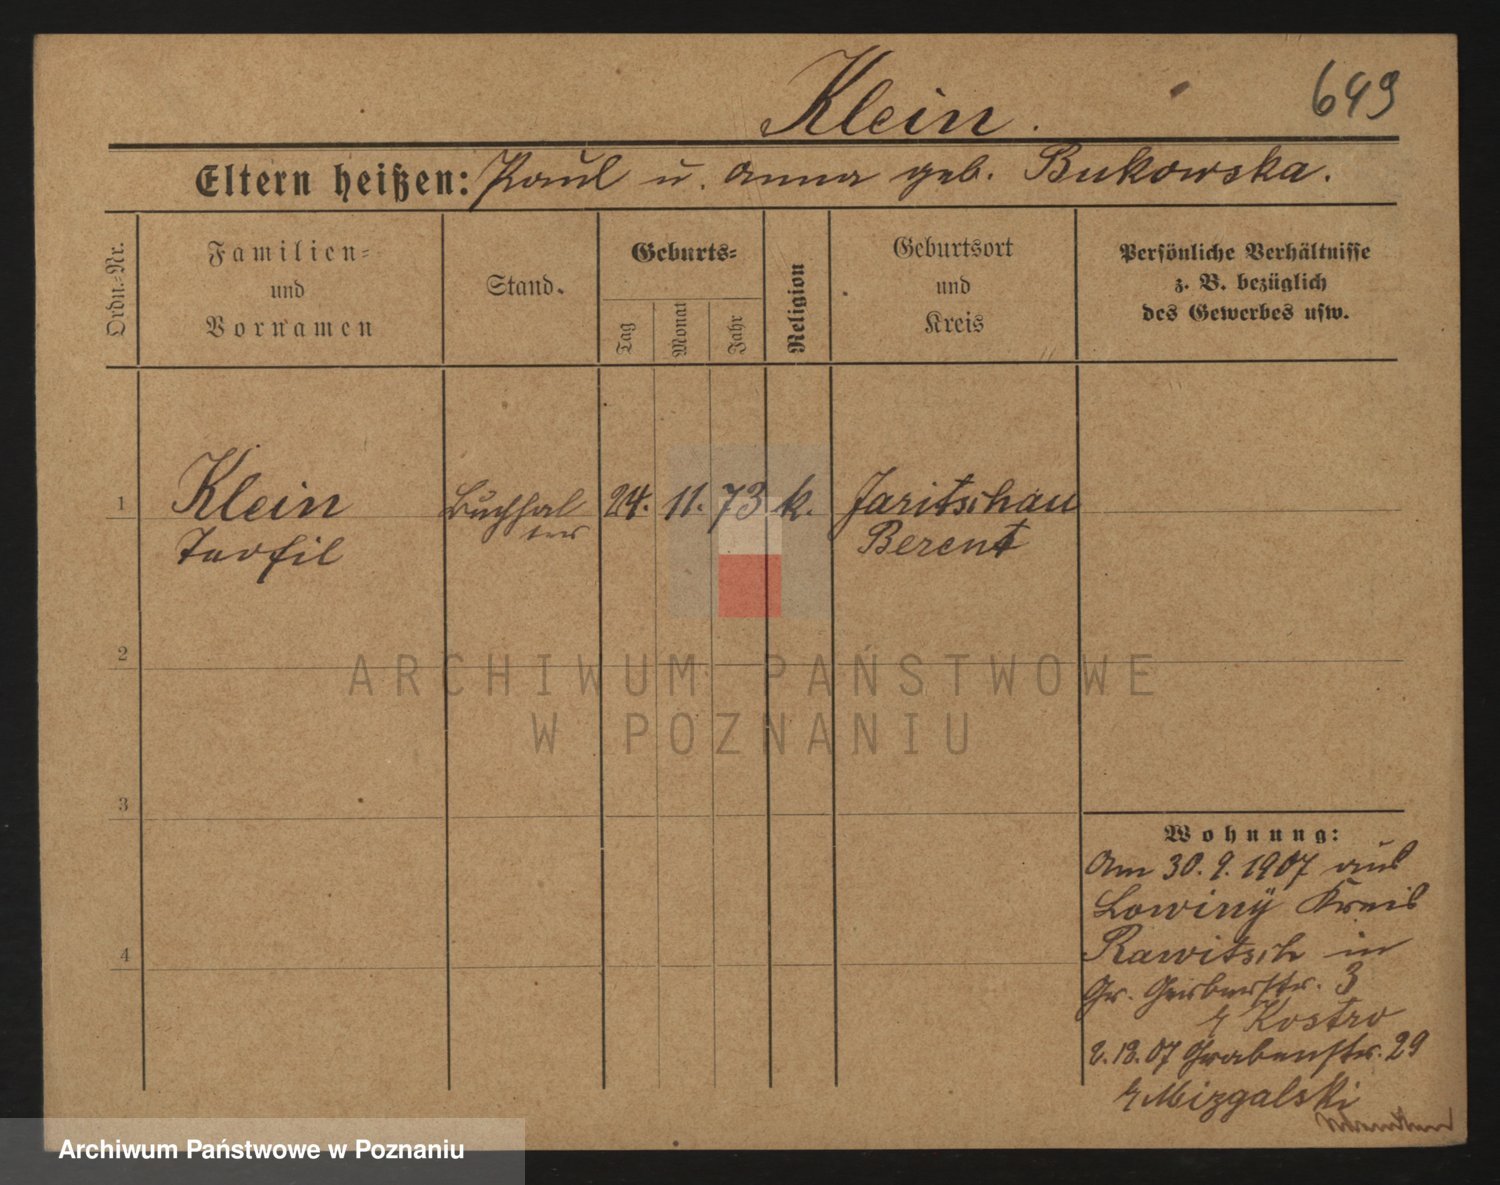 Klein.
649
Eltern heißen: Paul u. Anna geb. Bukowska.
Ordn.-Nr.
Familien-
und
Vornamen
Stand.
Geburts-
Tag
Monat
Jahr
Religion
Geburtsort
und
Kreis
Persönliche Verhältnisse
z. B. bezüglich
des Gewerbes usw.
1
Klein
Teofil
Buchhal
ter
24.
11.
73
k.
Jaritschau
Berent
2
3
4
Wohnung:
Am 30. 9. 1907 aus
Lowiny Kreis
Rawitsch in
Gr. Gerberstr. 3
Kostro
2. 12. 07 Grabenstr. 29
Mizgalski
ARCHIWUM PAŃSTWOWE
W POZNANIU
Archiwum Państwowe w Poznaniu